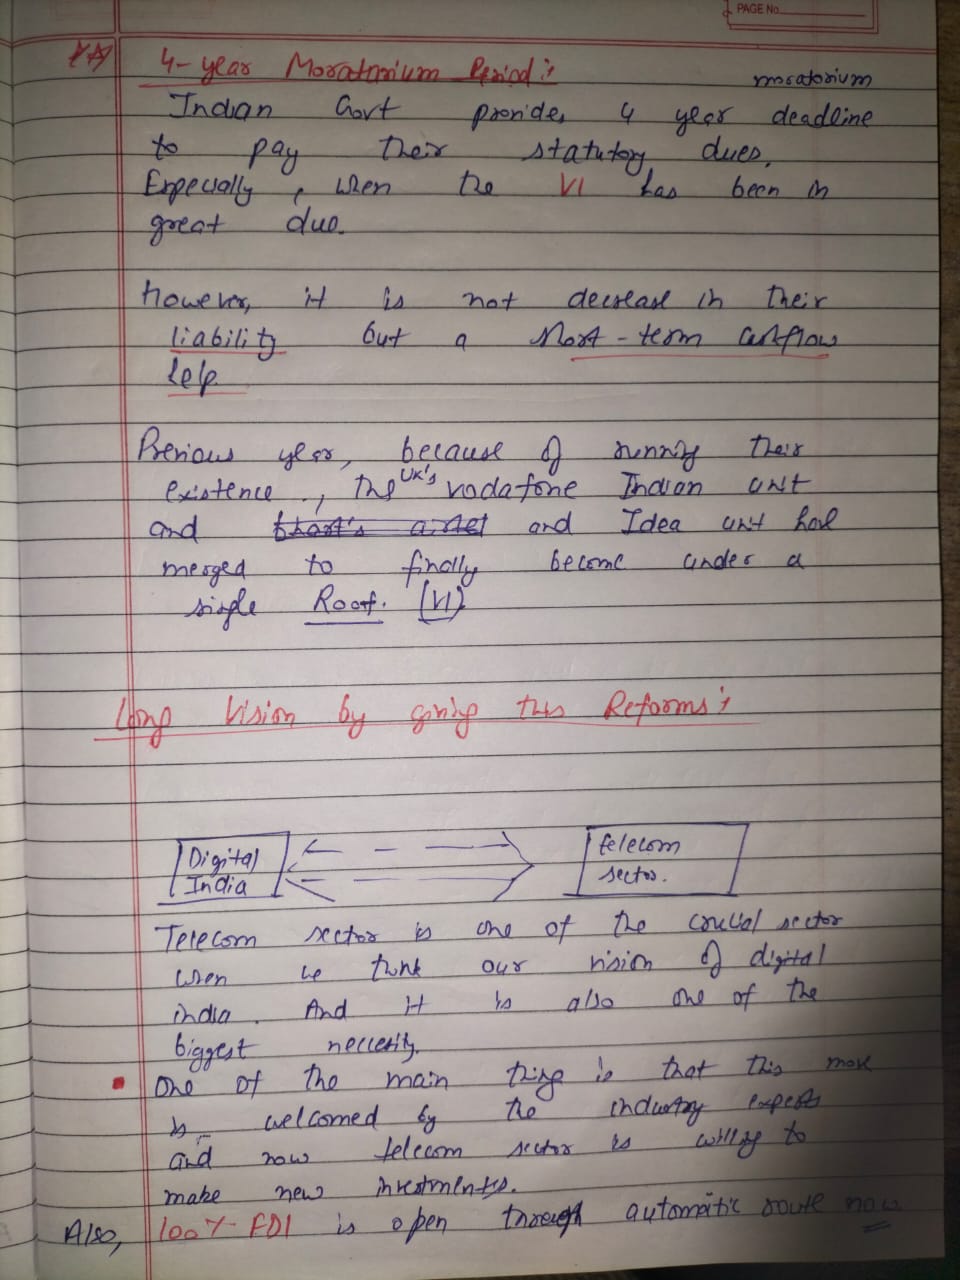 PAGE No.
4-year Moratorium Period:
moratorium
Indian Govt provides 4 year deadline
to pay their statutory dues.
Especially, when the VI has been in
great due.
however, it is not decrease in their
liability but a short-term cashflow
help
Previous year, because of running their
existence, the UK's vodafone Indian unit
and bharti's airtel and Idea unit had
merged to finally become under a
single Roof. (VI)
Long Vision by giving this Reforms:
Digital
India
telecom
sector.
Telecom sector is one of the crucial sector
when we think our vision of digital
india. And it is also one of the
biggest neccesity.
One of the main thing is that this move
is welcomed by the industry experts
and now telecom sector is willing to
make new investments.
Also, 100% FDI is open through automatic route now